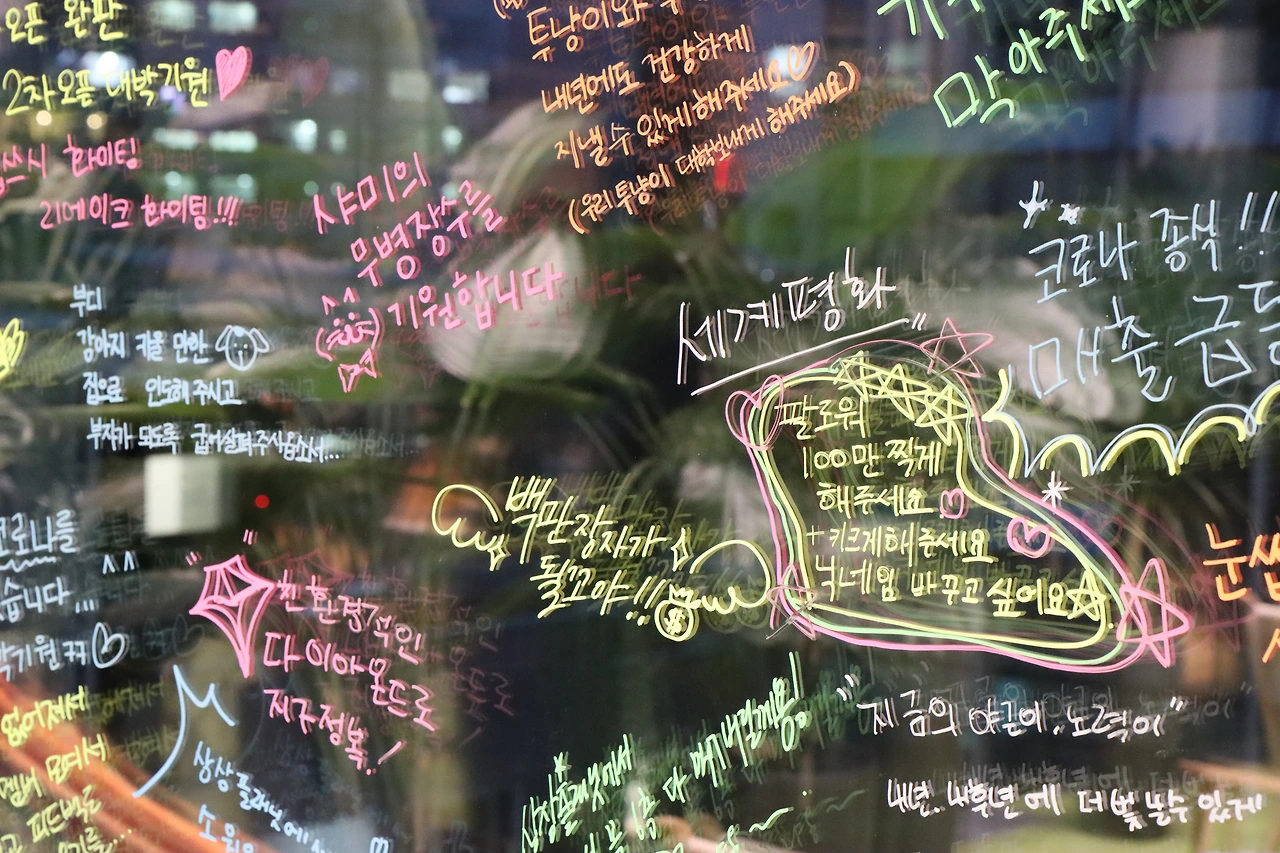 오픈 완판
2차 오픈 대박기원
화이팅
리에이크 화이팅!!!
튜냥이와
내년에도 건강하게
지낼 수 있게 해주세요
(우리 튜냥이 대학보내게 해주세요)
막아주세
샤미의
무병장수를
기원합니다
부디
강아지 키울 만한
집으로 인도해주시고
부자가 되도록 굽어살펴주시옵소서...
세계평화
코로나 종식!!
매출 급
팔로워
100만 찍게
해주세요
+키크게해주세요
닉네임 바꾸고 싶어요
백만장자가
될꼬야!!
코로나를
습니다...
기원
친환경적인
다이아몬드로
지구정복!
없어제세
피드백도
상상플래닛에서
소원
상상플래닛에서
다 해내길게용!
눈썹
"지금의 야근이, 노력이"
내년, 내후년에 더 빛날 수 있게